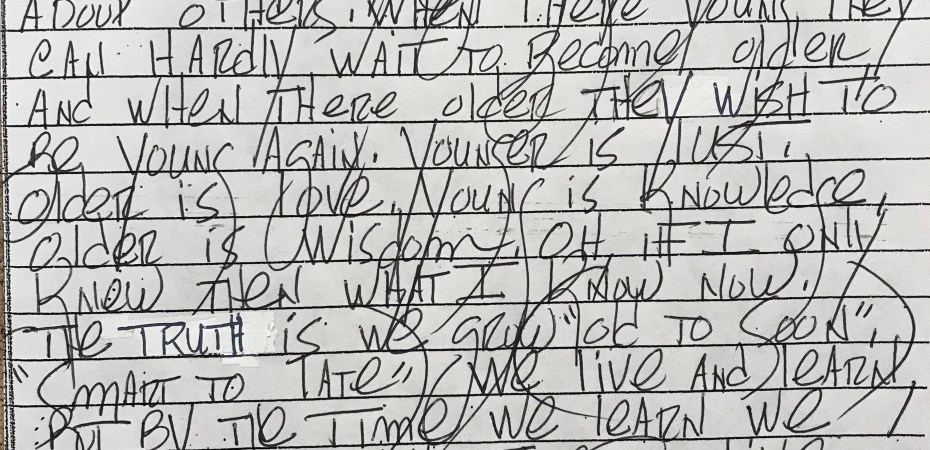 ABOUT OTHERS. WHEN THERE YOUNG THEY
CAN HARdly WAIT TO Become older
ANd WHeN THere older THey WISH TO
Be YOUNG AGAIN. YOUNGER IS LUST.
Older is love. YOUNG is KNOWledGe,
Older is Wisdom. OH if I ONly
KNew THeN WHAT I KNOW NOW.
THe TRUTH is We GROW "Old TO SOON",
"SMART TO lATe". We live ANd leARN,
BUT BY THe Time We leARN We